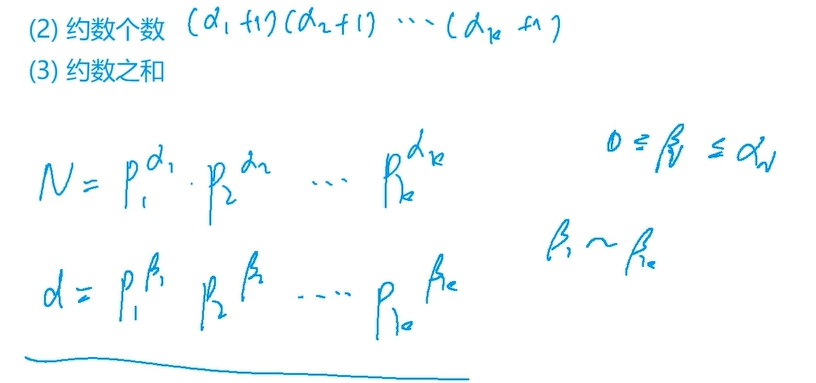 (2) 约数个数 (α₁+1)(α₂+1) ⋯ (αₖ+1)
(3) 约数之和
N = p₁^α₁ · p₂^α₂ ⋯ pₖ^αₖ
0 ≤ βᵢ ≤ αᵢ
d = p₁^β₁ p₂^β₂ ⋯ pₖ^βₖ
β₁ ~ βₖ